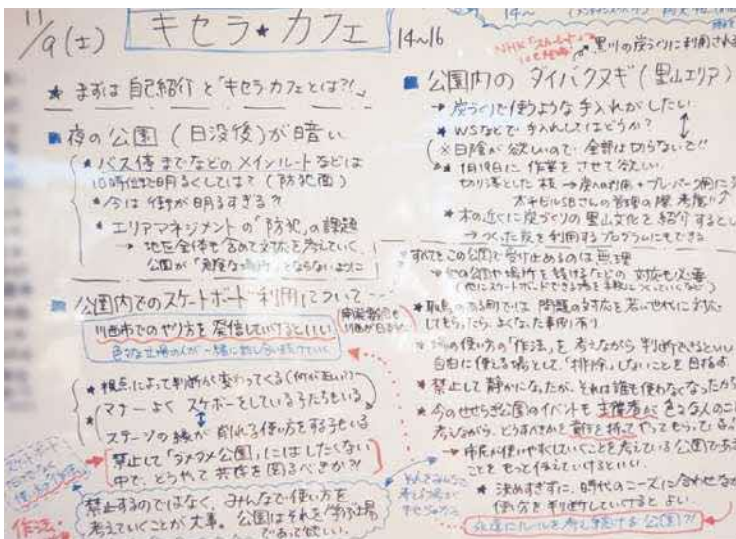 11/9(土) キセラ★カフェ 14〜16
★ まずは自己紹介と「キセラ・カフェとは?!」
■ 夜の公園(日没後)が暗い
★ バス停までなどのメインルートなどは
10時位まで明るくしては?(防犯面)
★ 今は街が明るすぎる?!
★ エリアマネジメントの「防犯」の課題
→ 地区全体も含めて対応を考えていく、
公園が「危険な場所」とならないように
■ 公園内でのスケートボード利用について
川西市でのやり方を発信していけるといい
色々な立場の人が一緒に話し合い続けていく
★ 視点によって判断が変わってくる(何が正しい?)
★ マナーよくスケボーをしている子たちもいる
ステージの縁が削れる使い方をする子もいる
→ 禁止して「ダメダメ公園」にはしたくない
中で、どうやって共存を図るべきか?!
禁止するのではなく、みんなで使い方を
考えていくことが大事。公園はそれを学ぶ場
であって欲しい。
作法・
14〜
NHK
黒川の炭づくりに利用され
■ 公園内のダイバクヌギ(里山エリア)
→ 炭づくりで使うような手入れがしたい
★ WSなどで手入れしてはどうか?
(※日陰が欲しいので全部は切らないで!!
★ 1月19日に作業をさせて欲しい
切り落とした枝 →
★ 木の近くに炭づくりの里山文化を紹介すると
→ つくった炭を利用するプログラムにもできる
すべてをこの公園で受け止めるのは無理
→ 他の公園や場所を設けるなどの対応も必要
(他にスケートボードできる場を
★ 鳥取のある町では問題の対応を若い世代に対応
してもらったら、よくなった事例有り
の使い方の「作法」を考えながら判断できるといい
自由に使える場として「排除」しないことを目指す
★ 禁止して静かになったが、それは誰も使わなくなったから
★ 今のせせらぎ公園のイベントも主催者が色々な人のこ
考えながら、どうすべきか責任を持ってやってもらっている
→ 市民が使いやすくしていくことを考えている公園であ
ことをもっと伝えていけるといい。
★ 決めすぎずに、時代のニーズに合わせな
使い方を判断していけるとよい
永遠にルールを考え続ける公園?!